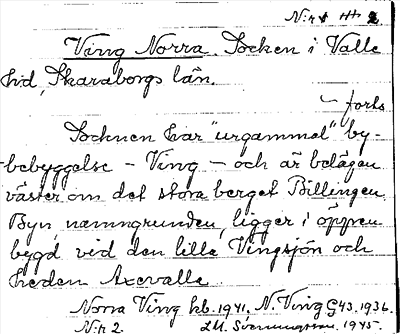 N:r 1
Ving Norra. Socken i Valle
hd, Skaraborgs län.
– forts.
Socknen har "urgammal" by-
-bebyggelse – Ving – och är belägen
väster om det stora berget Billingen.
Byn, namngrunden, ligger i öppen
bygd vid den lilla Vingsjön och
heden Axevalla.
Norra Ving hb. 1941. N. Ving G43. 1936.
N:r 2. 1945.